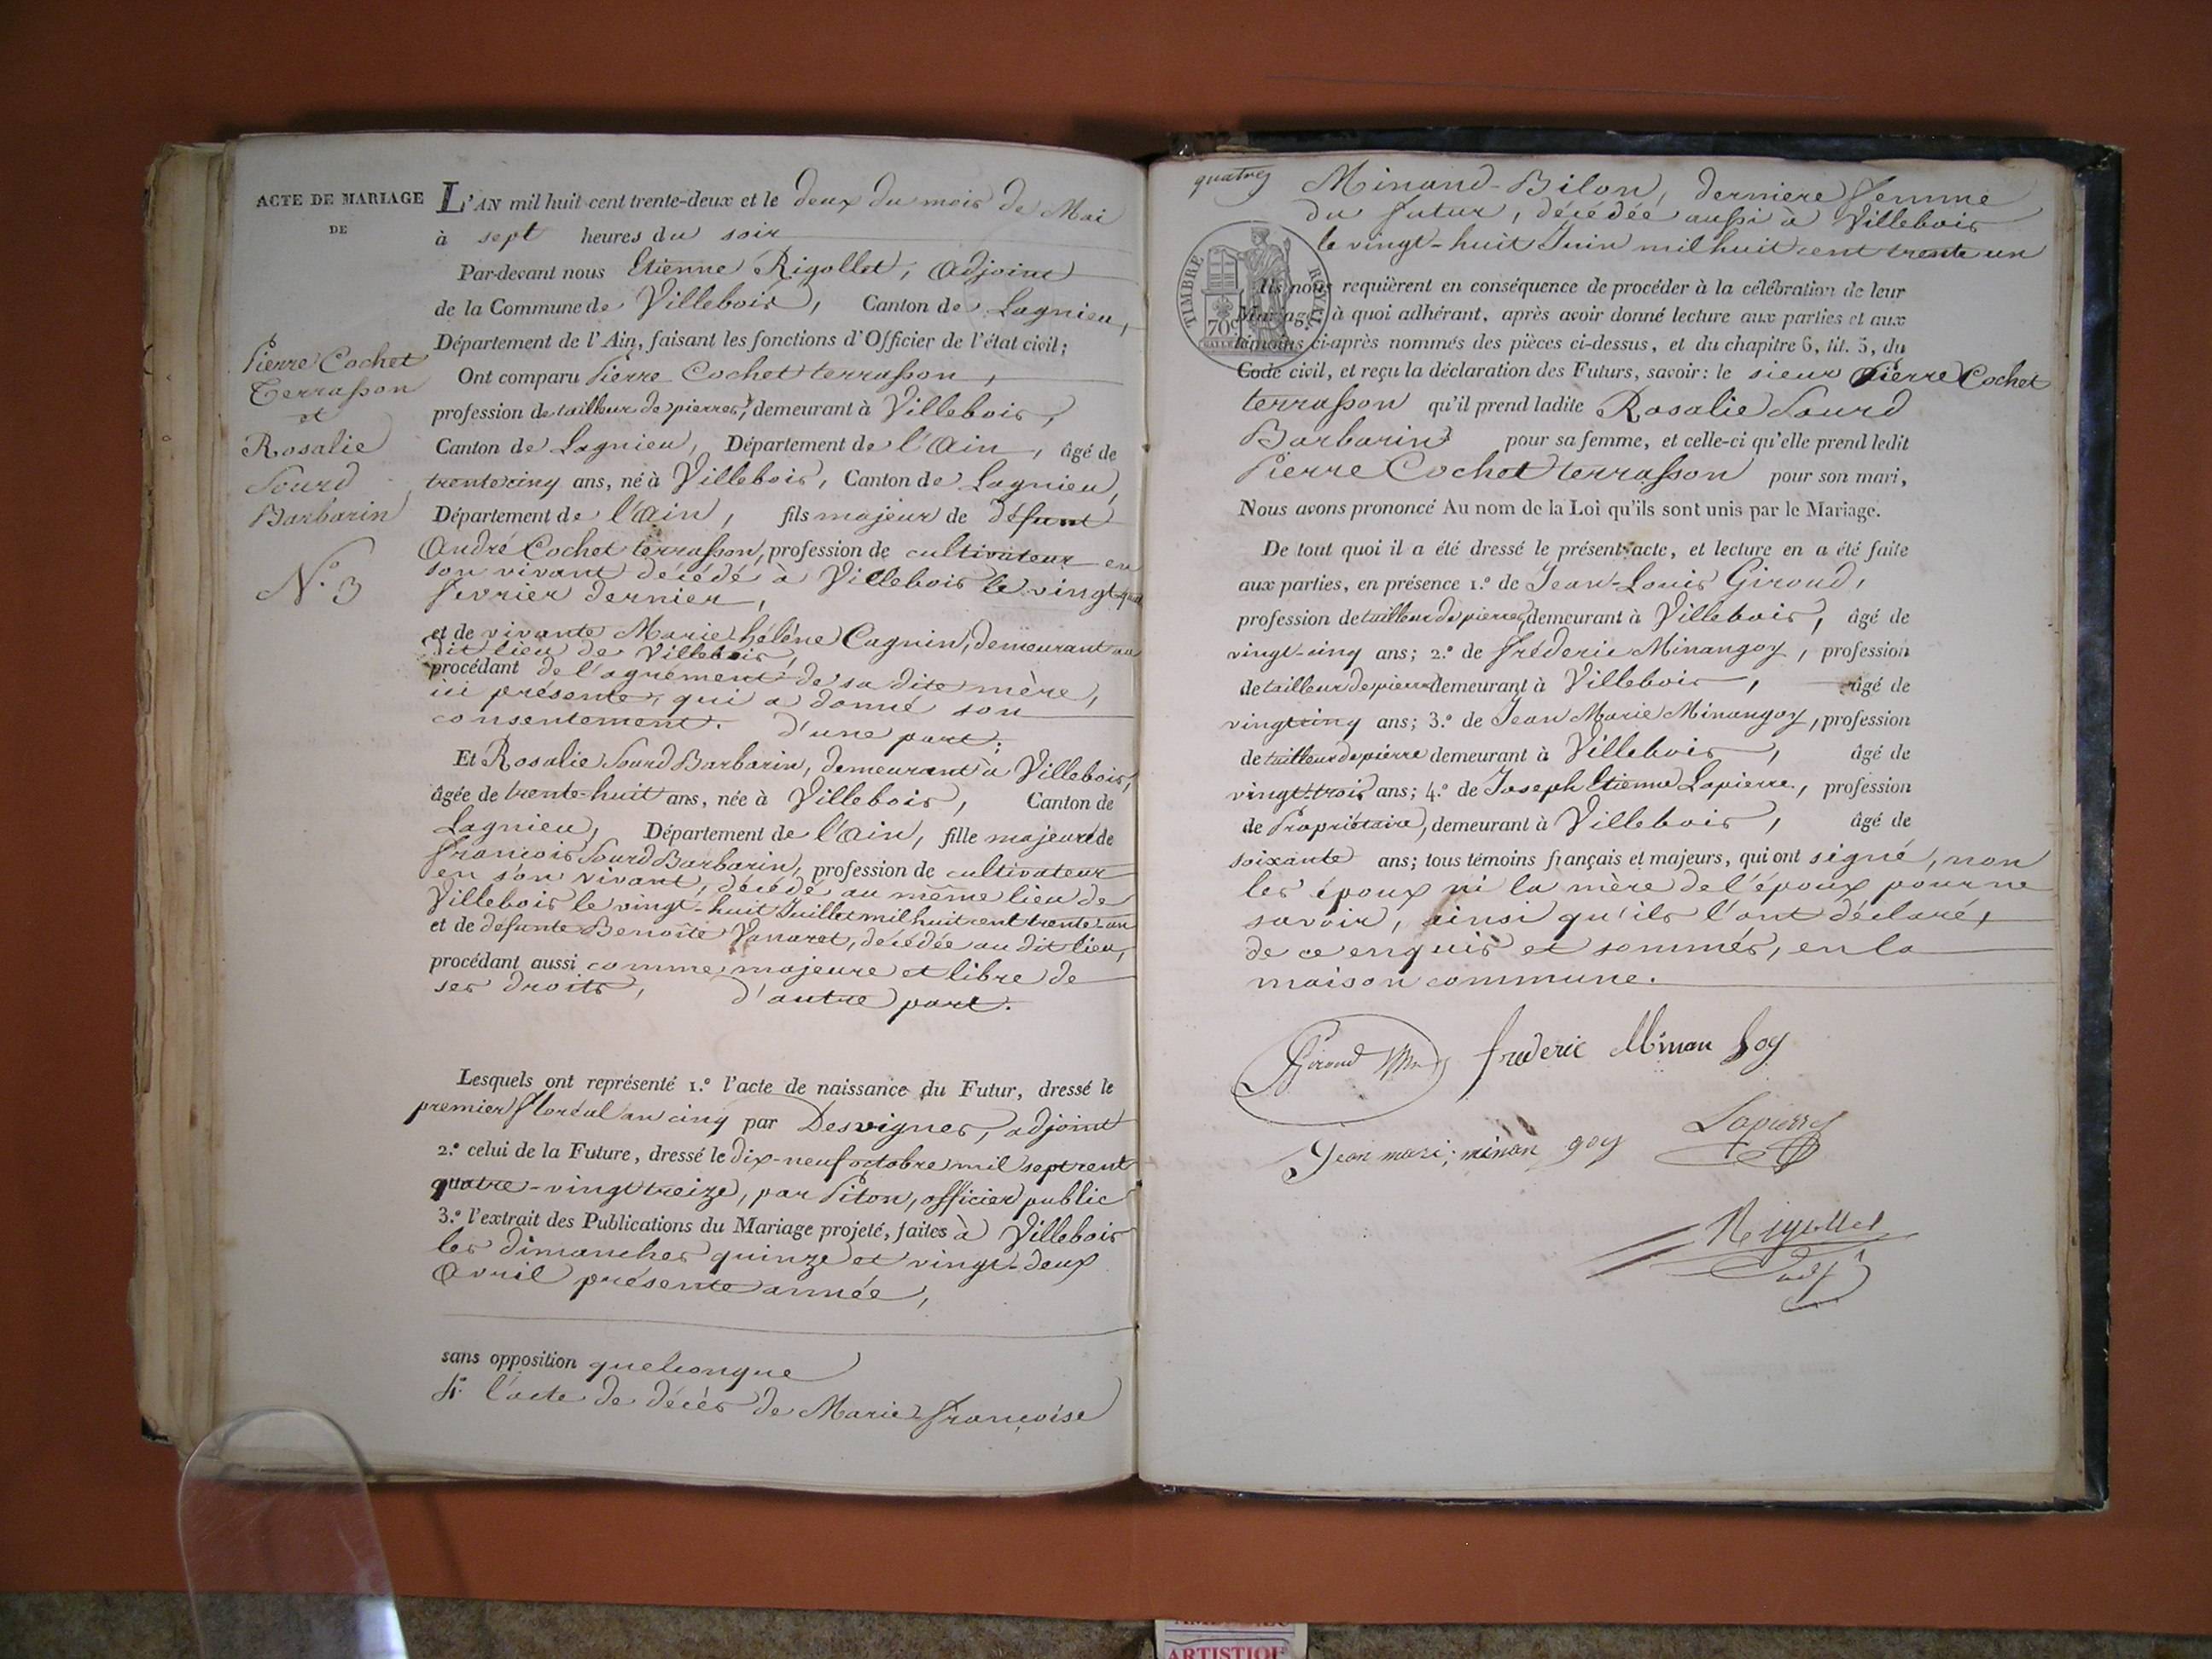 ACTE DE MARIAGE
DE
Pierre Cochet
Terrasson
et
Rosalie
Sourd
Barbarin
N.º 3
L'AN mil huit cent trente-deux et le deux du mois de Mai
à sept heures du soir
Par-devant nous Etienne Rigollet, Adjoint
de la Commune de Villebois, Canton de Lagnieu,
Département de l'Ain, faisant les fonctions d'Officier de l'état civil;
Ont comparu Pierre Cochet terrasson,
profession de tailleur de pierres, demeurant à Villebois,
Canton de Lagnieu, Département de l'Ain, âgé de
trente cinq ans, né à Villebois, Canton de Lagnieu,
Département de l'Ain, fils majeur de défunt
André Cochet terrasson, profession de cultivateur en
son vivant décédé à Villebois le vingt
fevrier dernier,
et de vivante Marie hélène Cagnin, demeurant au
dit lieu de Villebois,
procédant de l'agrément de sa dite mère,
ici présente, qui a donné son
consentement. d'une part;
Et Rosalie Sourd Barbarin, demeurant à Villebois,
âgée de trente-huit ans, née à Villebois, Canton de
Lagnieu, Département de l'Ain, fille majeure de
françois Sourd Barbarin, profession de cultivateur
en son vivant, décédé au même lieu de
Villebois le vingt-huit Juillet mil huit cent trente-un
et de défunte Benoîte Vanaret, décédée au dit lieu,
procédant aussi comme majeure et libre de
ses droits, d'autre part.
Lesquels ont représenté 1.º l'acte de naissance du Futur, dressé le
premier floréal an cinq par Desvignes, adjoint
2.º celui de la Future, dressé le dix-neuf octobre mil sept cent
quatre-vingt treize, par Piton, officier public
3.º l'extrait des Publications du Mariage projeté, faites à Villebois
les dimanches quinze et vingt-deux
Avril présente année,
sans opposition quelconque
4º l'acte de décès de Marie françoise
quatre
Minand-Bilon, derniere femme
du futur, décédée aussi à Villebois
le vingt-huit Juin mil huit cent trente un
TIMBRE ROYAL
70 c.
Ils nous requièrent en conséquence de procéder à la célébration de leur
Mariage, à quoi adhérant, après avoir donné lecture aux parties et aux
témoins ci-après nommés des pièces ci-dessus, et du chapitre 6, tit. 5, du
Code civil, et reçu la déclaration des Futurs, savoir: le sieur Pierre Cochet
terrasson qu'il prend ladite Rosalie Sourd
Barbarin pour sa femme, et celle-ci qu'elle prend ledit
Pierre Cochet terrasson pour son mari,
Nous avons prononcé Au nom de la Loi qu'ils sont unis par le Mariage.
De tout quoi il a été dressé le présent acte, et lecture en a été faite
aux parties, en présence 1.º de Jean-Louis Giroud,
profession de tailleur de pierres, demeurant à Villebois, âgé de
vingt-cinq ans; 2.º de fréderic Minangoy, profession
de tailleur de pierre demeurant à Villebois, âgé de
vingt cinq ans; 3.º de Jean Marie Minangoy, profession
de tailleur de pierre demeurant à Villebois, âgé de
vingt-trois ans; 4.º de Joseph Etienne Lapierre, profession
de Propriétaire, demeurant à Villebois, âgé de
soixante ans; tous témoins français et majeurs, qui ont signé, non
les époux ni la mère de l'époux pour ne
savoir, ainsi qu'ils l'ont déclaré,
de ce enquis et sommés, en la
maison commune.
Giroud frederic Minan Goy
Jean mari; minan goy Lapierre
Rigollet
adj.
ARTISTIQUE